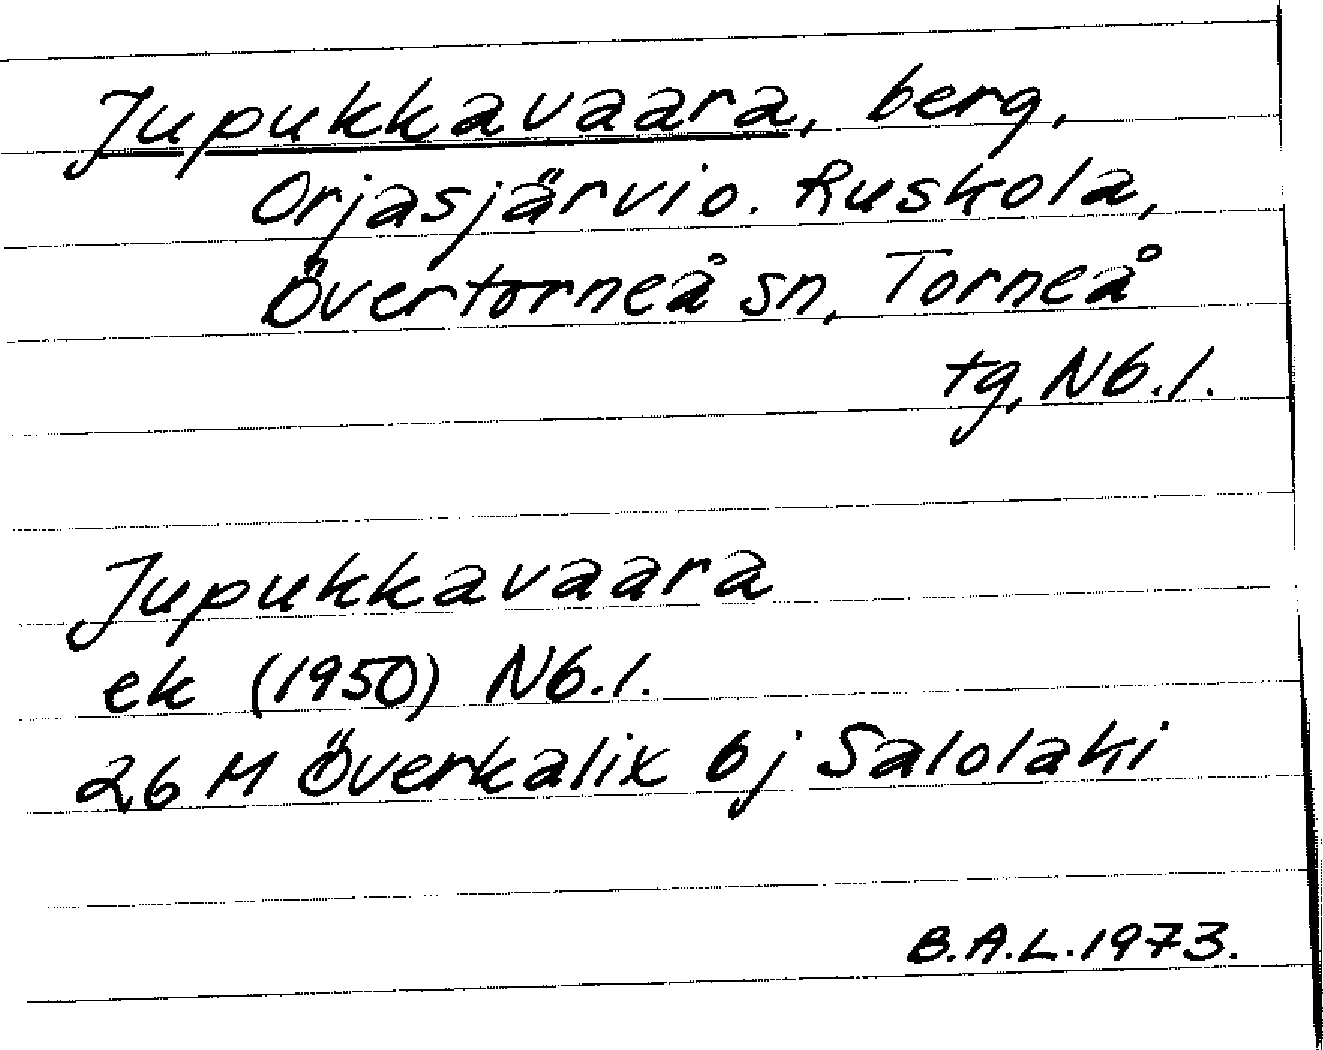 Jupukkavaara, berg,
Orjasjärvi o. Ruskola,
Övertorneå sn, Torneå
tg, Nb.l.
Jupukkavaara
ek (1950) Nb.l.
26 M Överkalix bj Salolaki
B.A.L. 1973.